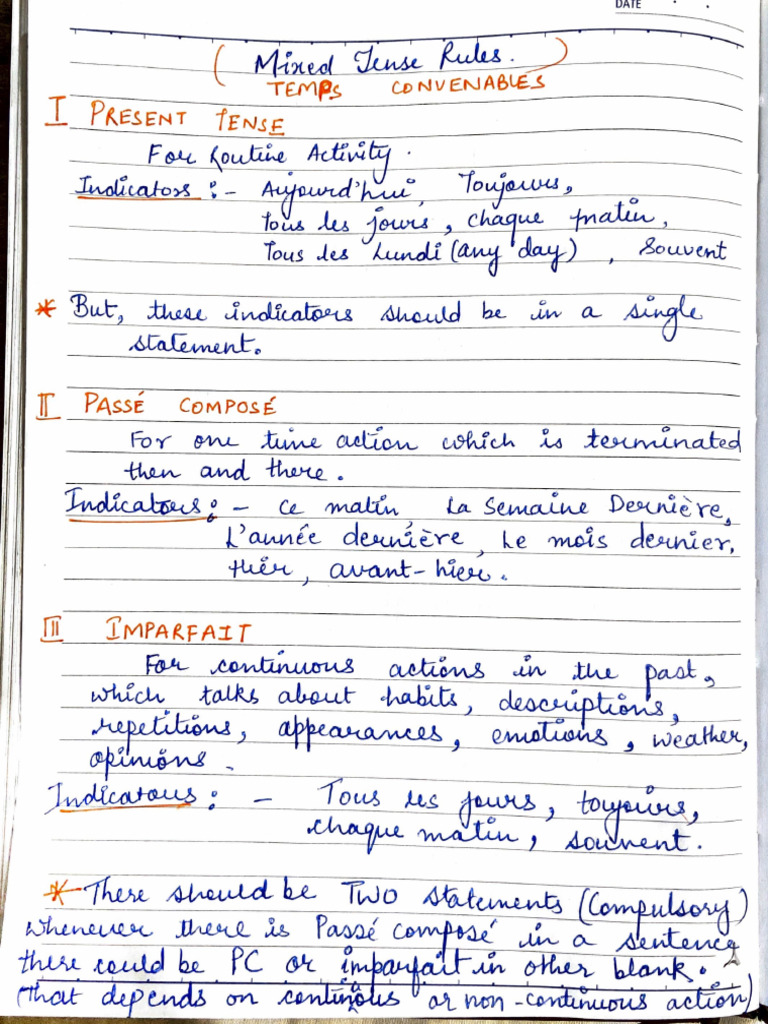 DATE
(Mixed Tense Rules.)
TEMPS CONVENABLES
I PRESENT TENSE
For Routine Activity.
Indicators :- Aujourd'hui, Toujours,
Tous les jours, chaque matin,
Tous les Lundi (any day), Souvent
* But, these indicators should be in a single
statement.
II PASSÉ COMPOSÉ
For one time action which is terminated
then and there.
Indicators :- Ce matin, La Semaine Dernière,
L'année dernière, Le mois dernier,
Hier, avant-hier.
III IMPARFAIT
For continuous actions in the past,
which talks about habits, descriptions,
repetitions, appearances, emotions, weather,
opinions.
Indicators :- Tous les jours, toujours,
chaque matin, souvent.
* There should be TWO statements (Compulsory)
whenever there is Passé composé in a sentence
there could be PC or imparfait in other blank.
(that depends on continuous or non-continuous action)